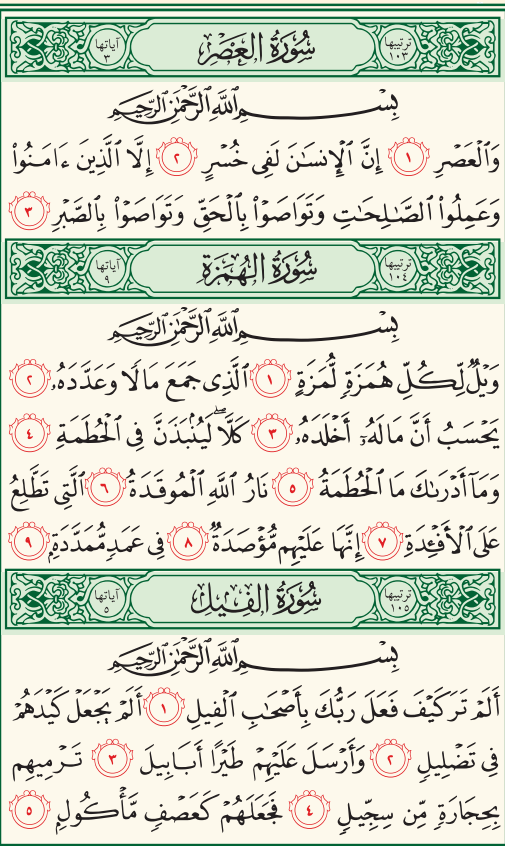 ترتيبها ١٠٣ سُورَةُ الْعَصْرِ آياتها ٣
بِسْمِ اللَّهِ الرَّحْمَٰنِ الرَّحِيمِ
وَالْعَصْرِ ١ إِنَّ الْإِنسَٰنَ لَفِى خُسْرٍ ٢ إِلَّا الَّذِينَ ءَامَنُوا۟
وَعَمِلُوا۟ الصَّٰلِحَٰتِ وَتَوَاصَوْا۟ بِالْحَقِّ وَتَوَاصَوْا۟ بِالصَّبْرِ ٣
ترتيبها ١٠٤ سُورَةُ الْهُمَزَةِ آياتها ٩
بِسْمِ اللَّهِ الرَّحْمَٰنِ الرَّحِيمِ
وَيْلٌ لِّكُلِّ هُمَزَةٍ لُّمَزَةٍ ١ الَّذِى جَمَعَ مَالًا وَعَدَّدَهُۥ ٢
يَحْسَبُ أَنَّ مَالَهُۥٓ أَخْلَدَهُۥ ٣ كَلَّا ۖ لَيُنۢبَذَنَّ فِى الْحُطَمَةِ ٤
وَمَآ أَدْرَىٰكَ مَا الْحُطَمَةُ ٥ نَارُ اللَّهِ الْمُوقَدَةُ ٦ الَّتِى تَطَّلِعُ
عَلَى الْأَفْـِٔدَةِ ٧ إِنَّهَا عَلَيْهِم مُّؤْصَدَةٌ ٨ فِى عَمَدٍ مُّمَدَّدَةٍۭ ٩
ترتيبها ١٠٥ سُورَةُ الْفِيلِ آياتها ٥
بِسْمِ اللَّهِ الرَّحْمَٰنِ الرَّحِيمِ
أَلَمْ تَرَ كَيْفَ فَعَلَ رَبُّكَ بِأَصْحَٰبِ الْفِيلِ ١ أَلَمْ يَجْعَلْ كَيْدَهُمْ
فِى تَضْلِيلٍ ٢ وَأَرْسَلَ عَلَيْهِمْ طَيْرًا أَبَابِيلَ ٣ تَرْمِيهِم
بِحِجَارَةٍ مِّن سِجِّيلٍ ٤ فَجَعَلَهُمْ كَعَصْفٍ مَّأْكُولٍۭ ٥